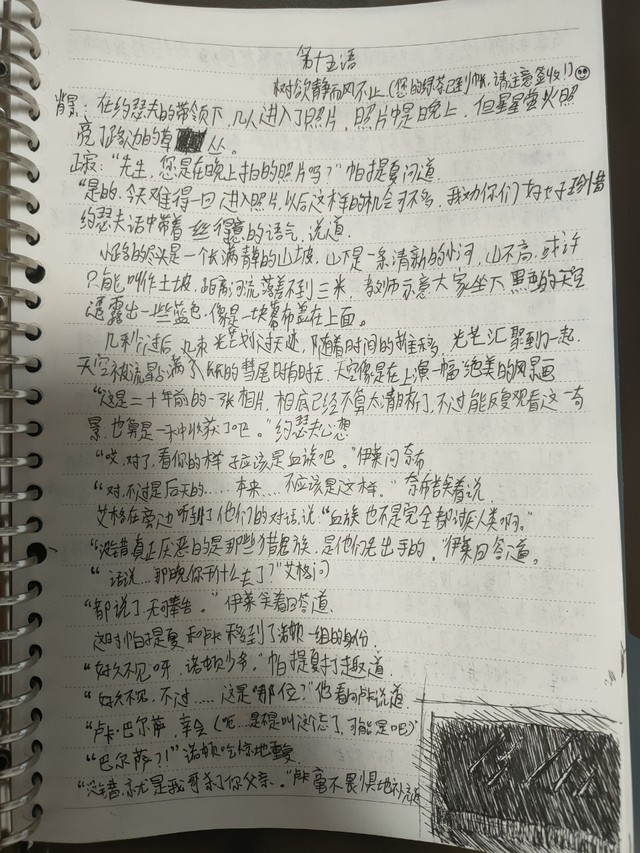 第十五语
树欲静而风不止(您的绿茶已到帐,请注意签收!)
背景:在约瑟夫的带领下,几人进入了照片,照片中是晚上,但星星萤火照
亮了路边的草丛。
正寂:"先生,您是在晚上拍的照片吗?"帕提夏问道
"是的,今天难得一回进入照片,以后这样的机会可不多,我劝你们好好珍惜
约瑟夫话中带着一丝得意的语气,说道.
小路的尽头是一个长满静的山坡,山下是一条清新的小河,山不高,或许
只能叫作土坡,距离河流落差不到三米,教师示意大家坐下,黑色的天空
透露出一些蓝色,像是一块幕布盖在上面。
几秒过后,几束光芒划过天迹,随着时间的推移,光芒汇聚到一起.
天空被流星占满了,长长的彗尾时有时无,天空像是在上演一幅绝美的风景画
"这是二十年前的一张相片,相底已经不算太清晰了,不过能反复观看这一奇
景,也算是一种收获了吧。"约瑟夫心想
"哎,对了,看你的样子应该是血族吧。"伊莱问奈布
"对,不过是后天的……本来……不应该是这样。"奈布苦笑着说.
艾格在旁边听到了他们的对话,说"血族也不是完全都讨厌人类啊。"
"没错真正厌恶的是那些猎鬼族,是他们先出手的,"伊莱回答道。
"话说…那晚你干什么去了?"艾格问
"都说了,无可奉告。"伊莱笑着回答道.
这时帕提夏和卢卡移到了诺顿一组的身份.
"好久不见呀,诺顿少爷。"帕提夏打趣道.
"好久不见,不过……这是哪位?"他看向卢卡说道
"卢卡·巴尔萨,幸会(呃…是不是叫这个忘了,可能是吧)"
"巴尔萨?!"诺顿吃惊地重复
"没错,就是我哥杀了你父亲。"卢卡毫不畏惧地补充道